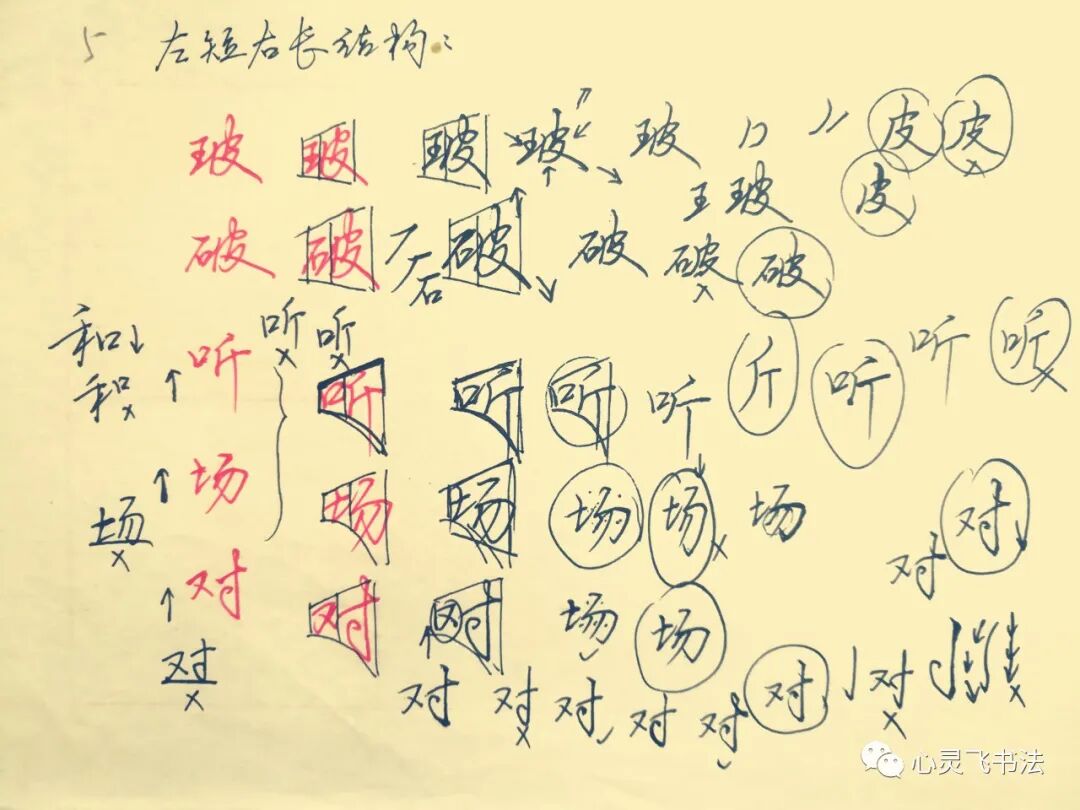 5 左短右长结构:
玻 玻 玻 玻 玻 皮 皮
王 玻 皮
破 破 石 破 破 破 破
和 听 听 听 听 听 听 听 斤 听 听 听
和
场 场 场 场 场 场 场
对 对
对 对 对 场 场
对 对 对 对 对 对 对 对
心灵飞书法